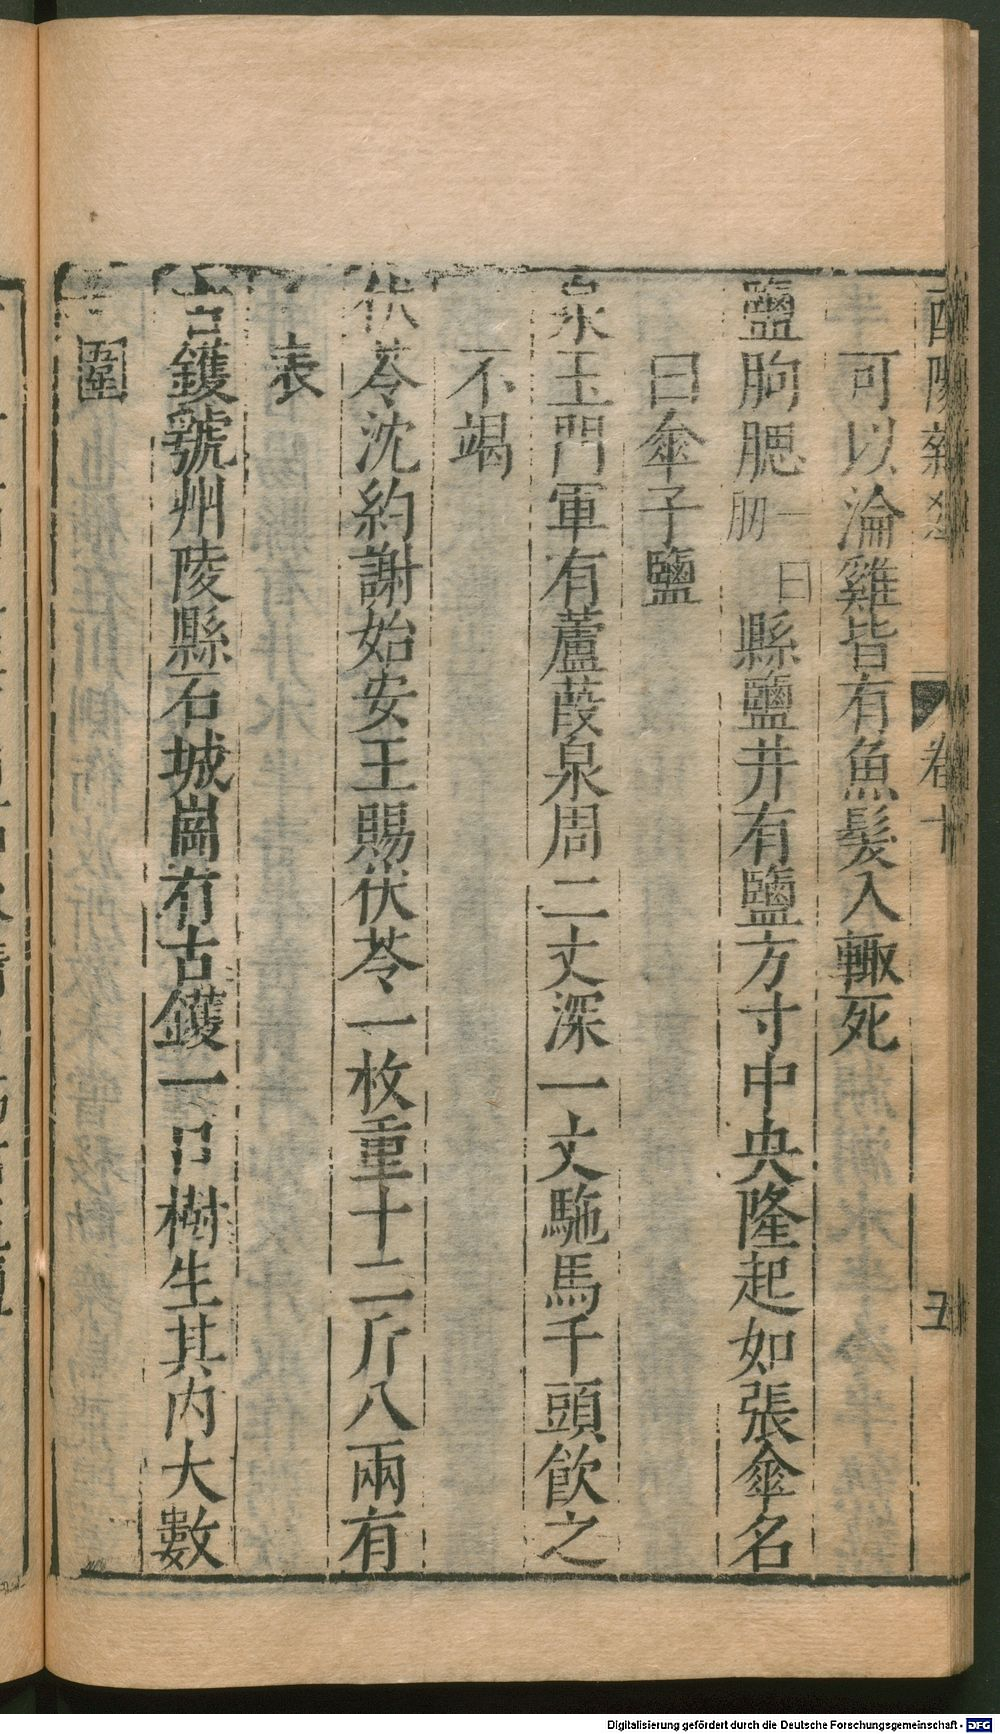 酉陽雜俎 卷十 五
可以淪雞皆有魚髮入輙死
鹽朐腮一曰䏰縣鹽井有鹽方寸中央隆起如張傘名
曰傘子鹽
泉玉門軍有蘆葭泉周二丈深一丈駞馬千頭飲之
不竭
伏苓沈約謝始安王賜伏苓一枚重十二斤八兩有
表
古鑊虢州陵縣石城崗有古鑊一口樹生其内大數
圍
Digitalisierung gefördert durch die Deutsche Forschungsgemeinschaft - DFG